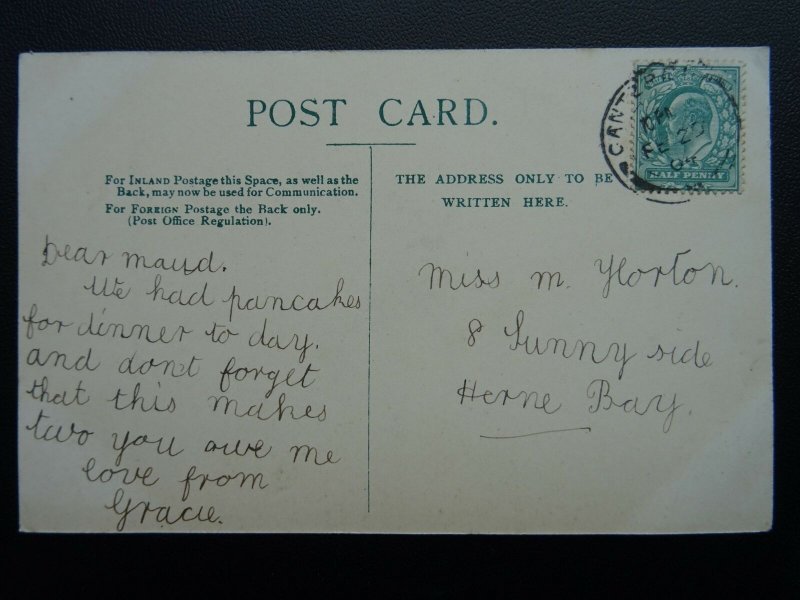 POST CARD.
For INLAND Postage this Space, as well as the
Back, may now be used for Communication.
For FOREIGN Postage the Back only.
(Post Office Regulation).
THE ADDRESS ONLY TO BE
WRITTEN HERE.
HALF PENNY
Dear maud.
We had pancakes
for dinner to day.
and dont forget
that this makes
two you owe me
love from
Gracie.
Miss m. Horton.
8 Sunny side
Herne Bay.